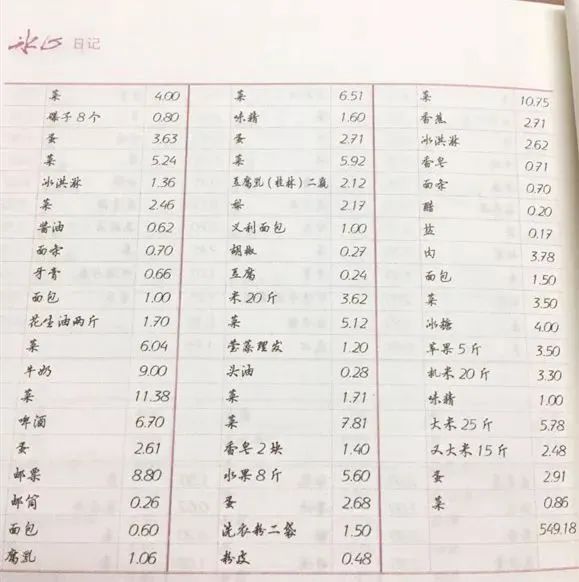 冰心 日记
菜 4.00
馃子8个 0.80
蛋 3.63
菜 5.24
冰淇淋 1.36
菜 2.46
酱油 0.62
面条 0.70
牙膏 0.66
面包 1.00
花生油两斤 1.70
菜 6.04
牛奶 9.00
菜 11.38
啤酒 6.70
蛋 2.61
邮票 8.80
邮筒 0.26
面包 0.60
腐乳 1.06
菜 6.51
味精 1.60
蛋 2.71
菜 5.92
豆腐乳(桂林)二瓶 2.12
梨 2.17
义利面包 1.00
胡椒 0.27
豆腐 0.24
米20斤 3.62
菜 5.12
莹藻理发 1.20
头油 0.28
菜 1.71
菜 7.81
香皂2块 1.40
水果8斤 5.60
蛋 2.68
洗衣粉二袋 1.50
粉皮 0.48
菜 10.75
香蕉 2.71
冰淇淋 2.62
香皂 0.71
面条 0.70
醋 0.20
盐 0.17
肉 3.78
面包 1.50
菜 3.50
冰糖 4.00
苹果5斤 3.50
机米20斤 3.30
味精 1.00
大米25斤 5.78
又大米15斤 2.48
蛋 2.91
菜 0.86
549.18